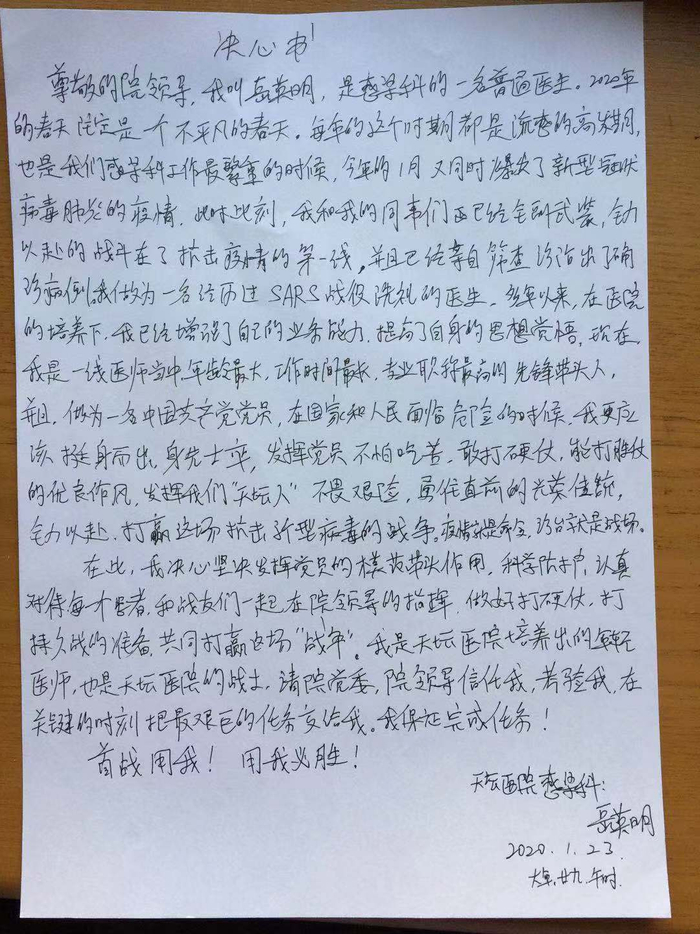 决心书
尊敬的院领导,我叫岳英明,是感染科的一名普通医生。2020年
的春天注定是一个不平凡的春天。每年的这个时期都是流感的高发期,
也是我们感染科工作最繁重的时候,今年的1月又同时爆发了新型冠状
病毒肺炎的疫情。此时此刻,我和我的同事们正已经全副武装,全力
以赴的战斗在了抗击疫情的第一线,并且已经亲自筛查诊治出了确
诊病例。我做为一名经历过SARS战役洗礼的医生,多年以来,在医院
的培养下,我已经增强了自己的业务能力,提高了自身的思想觉悟,现在
我是一线医师当中,年龄最大,工作时间最长,专业职称最高的先锋带头人,
并且,做为一名中国共产党党员,在国家和人民面临危险的时候,我更应
该挺身而出,身先士卒,发挥党员不怕吃苦,敢打硬仗,能打胜仗
的优良作风,发挥我们"天坛人"不畏艰险,勇往直前的光荣传统,
全力以赴,打赢这场抗击新型病毒的战争。疫情就是命令,诊台就是战场。
在此,我决心坚决发挥党员的模范带头作用,科学防护,认真
对待每一个患者,和战友们一起,在院领导的指挥,做好打硬仗,打
持久战的准备,共同打赢这场"战争"。我是天坛医院培养出的年轻
医师,也是天坛医院的战士,请院党委,院领导信任我,考验我,在
关键的时刻把最艰巨的任务交给我。我保证完成任务!
首战用我!用我必胜!
天坛医院感染科:
岳英明
2020.1.23
廿九.午时.